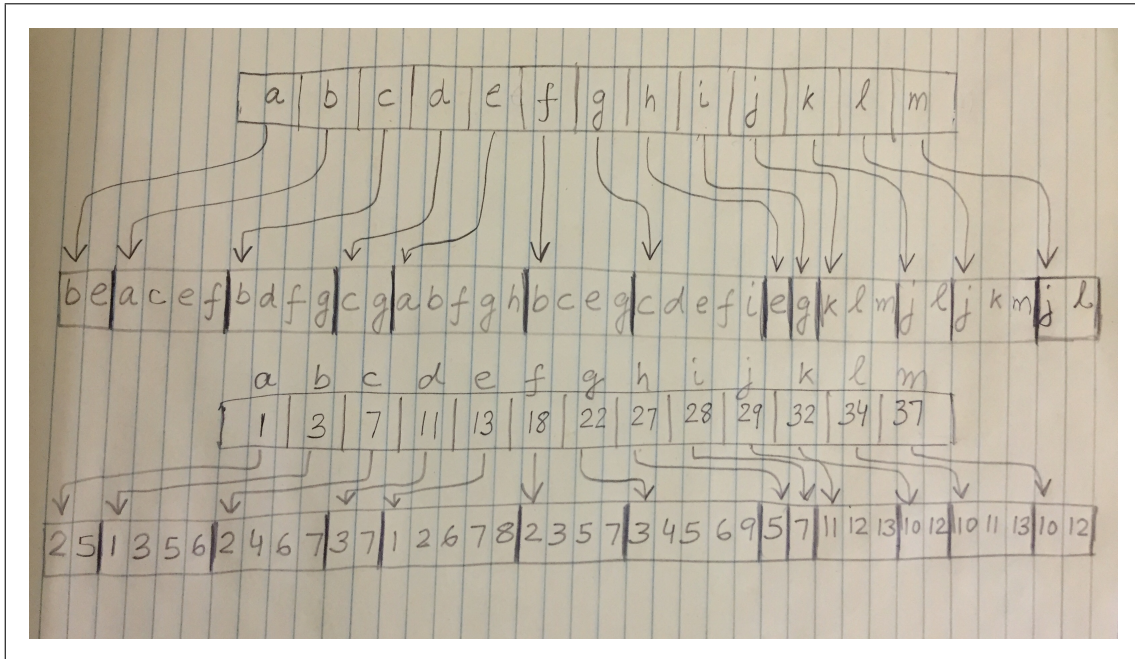 a b c d e f g h i j k l m
b e a c e f b d f g c g a b f g h b c e g c d e f i e g k l m j l j k m j l
a b c d e f g h i j k l m
1 3 7 11 13 18 22 27 28 29 32 34 37
2 5 1 3 5 6 2 4 6 7 3 7 1 2 6 7 8 2 3 5 7 3 4 5 6 9 5 7 11 12 13 10 12 10 11 13 10 12